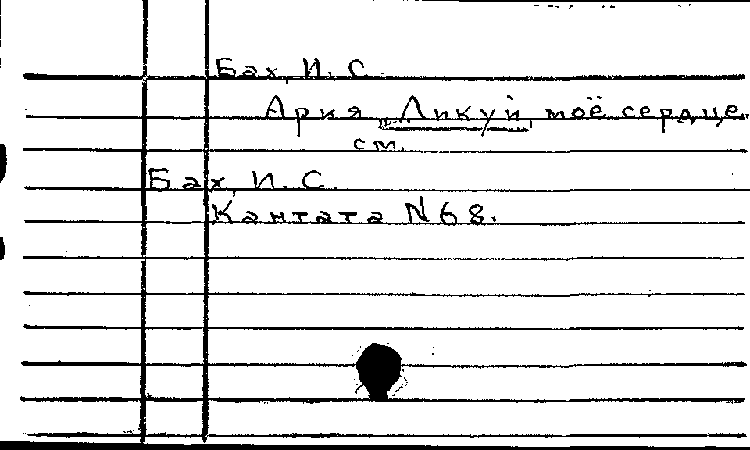 Бах, И. С.
Ария „Ликуй, моё сердце
см.
Бах, И. С.
Кантата N 68.